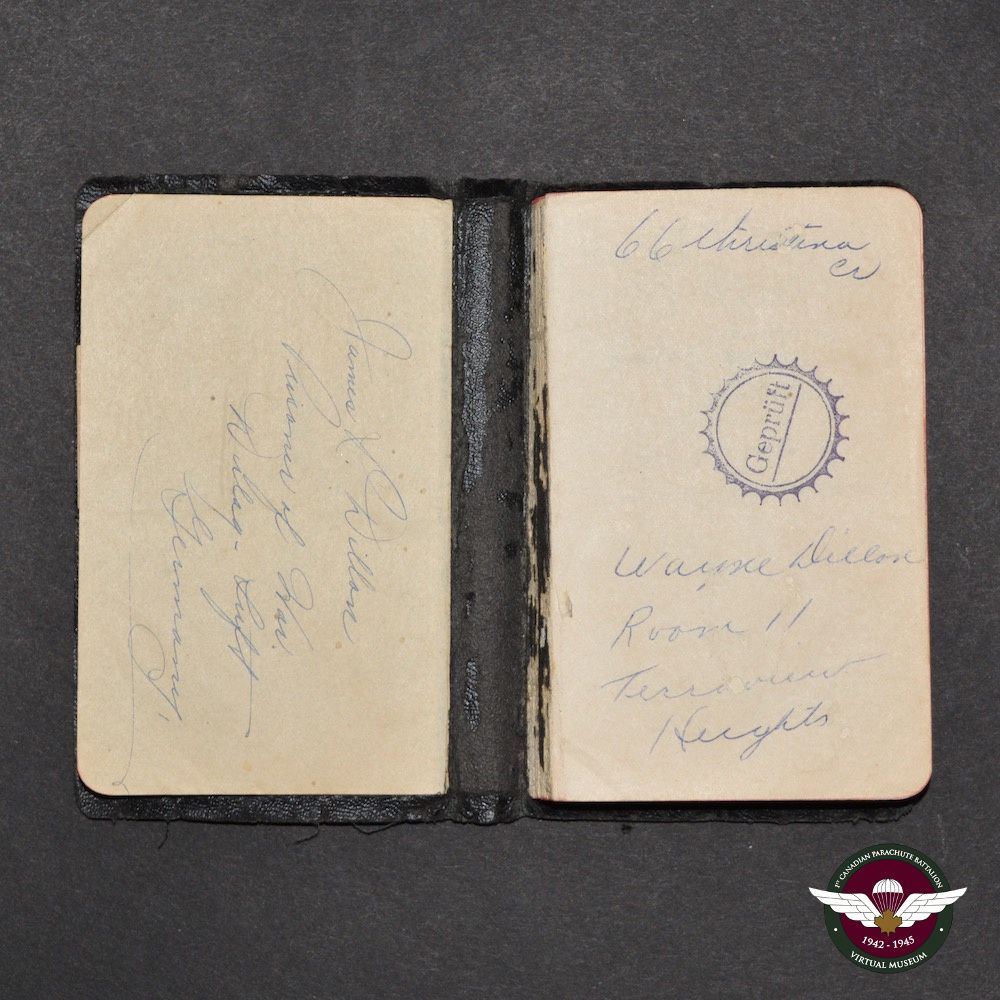 James K. Dillon
Prisoner of War.
Dulag - Luft
Germany.
66 Christina
Cr
Geprüft
Wayne Dillon
Room 11
Terraview
Heights
1ST CANADIAN PARACHUTE BATTALION
1942 - 1945
VIRTUAL MUSEUM